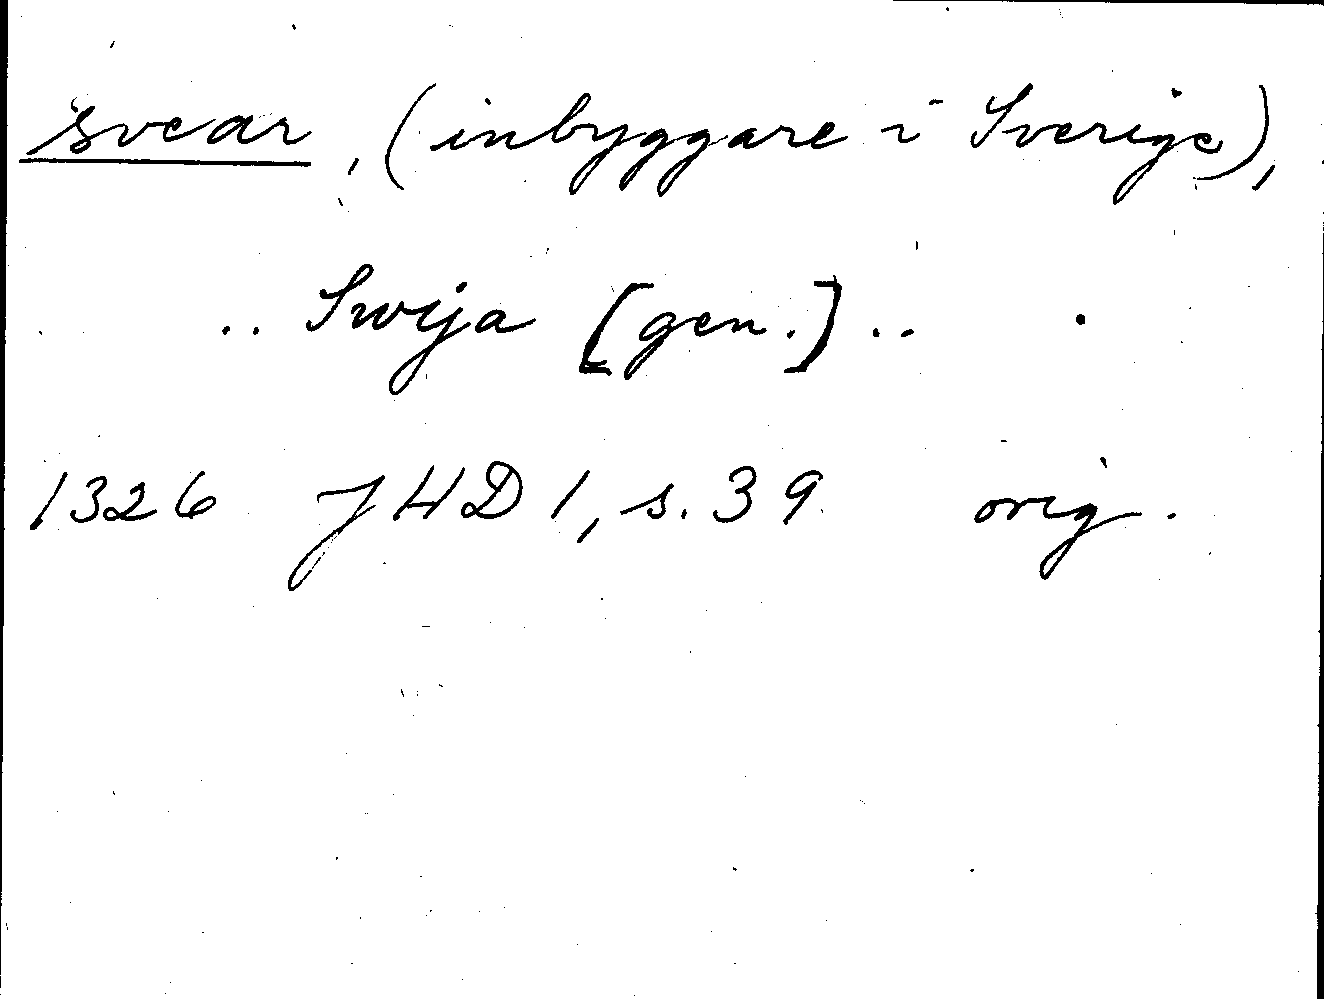 svear, (inbyggare i Sverige),
.. Swija [gen.] ..
1326 JHD 1, s. 39 orig.